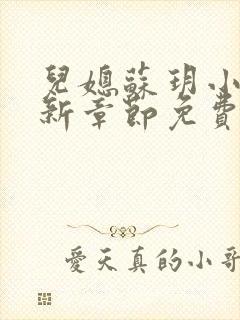 兒媳蘇玥小
新章節免費
愛天真的小哥